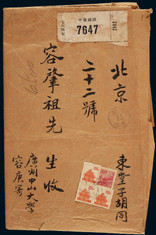 7647
北京
東堂子胡同
二十二號
容肇祖先生收
廣州中山大學
容庚寄